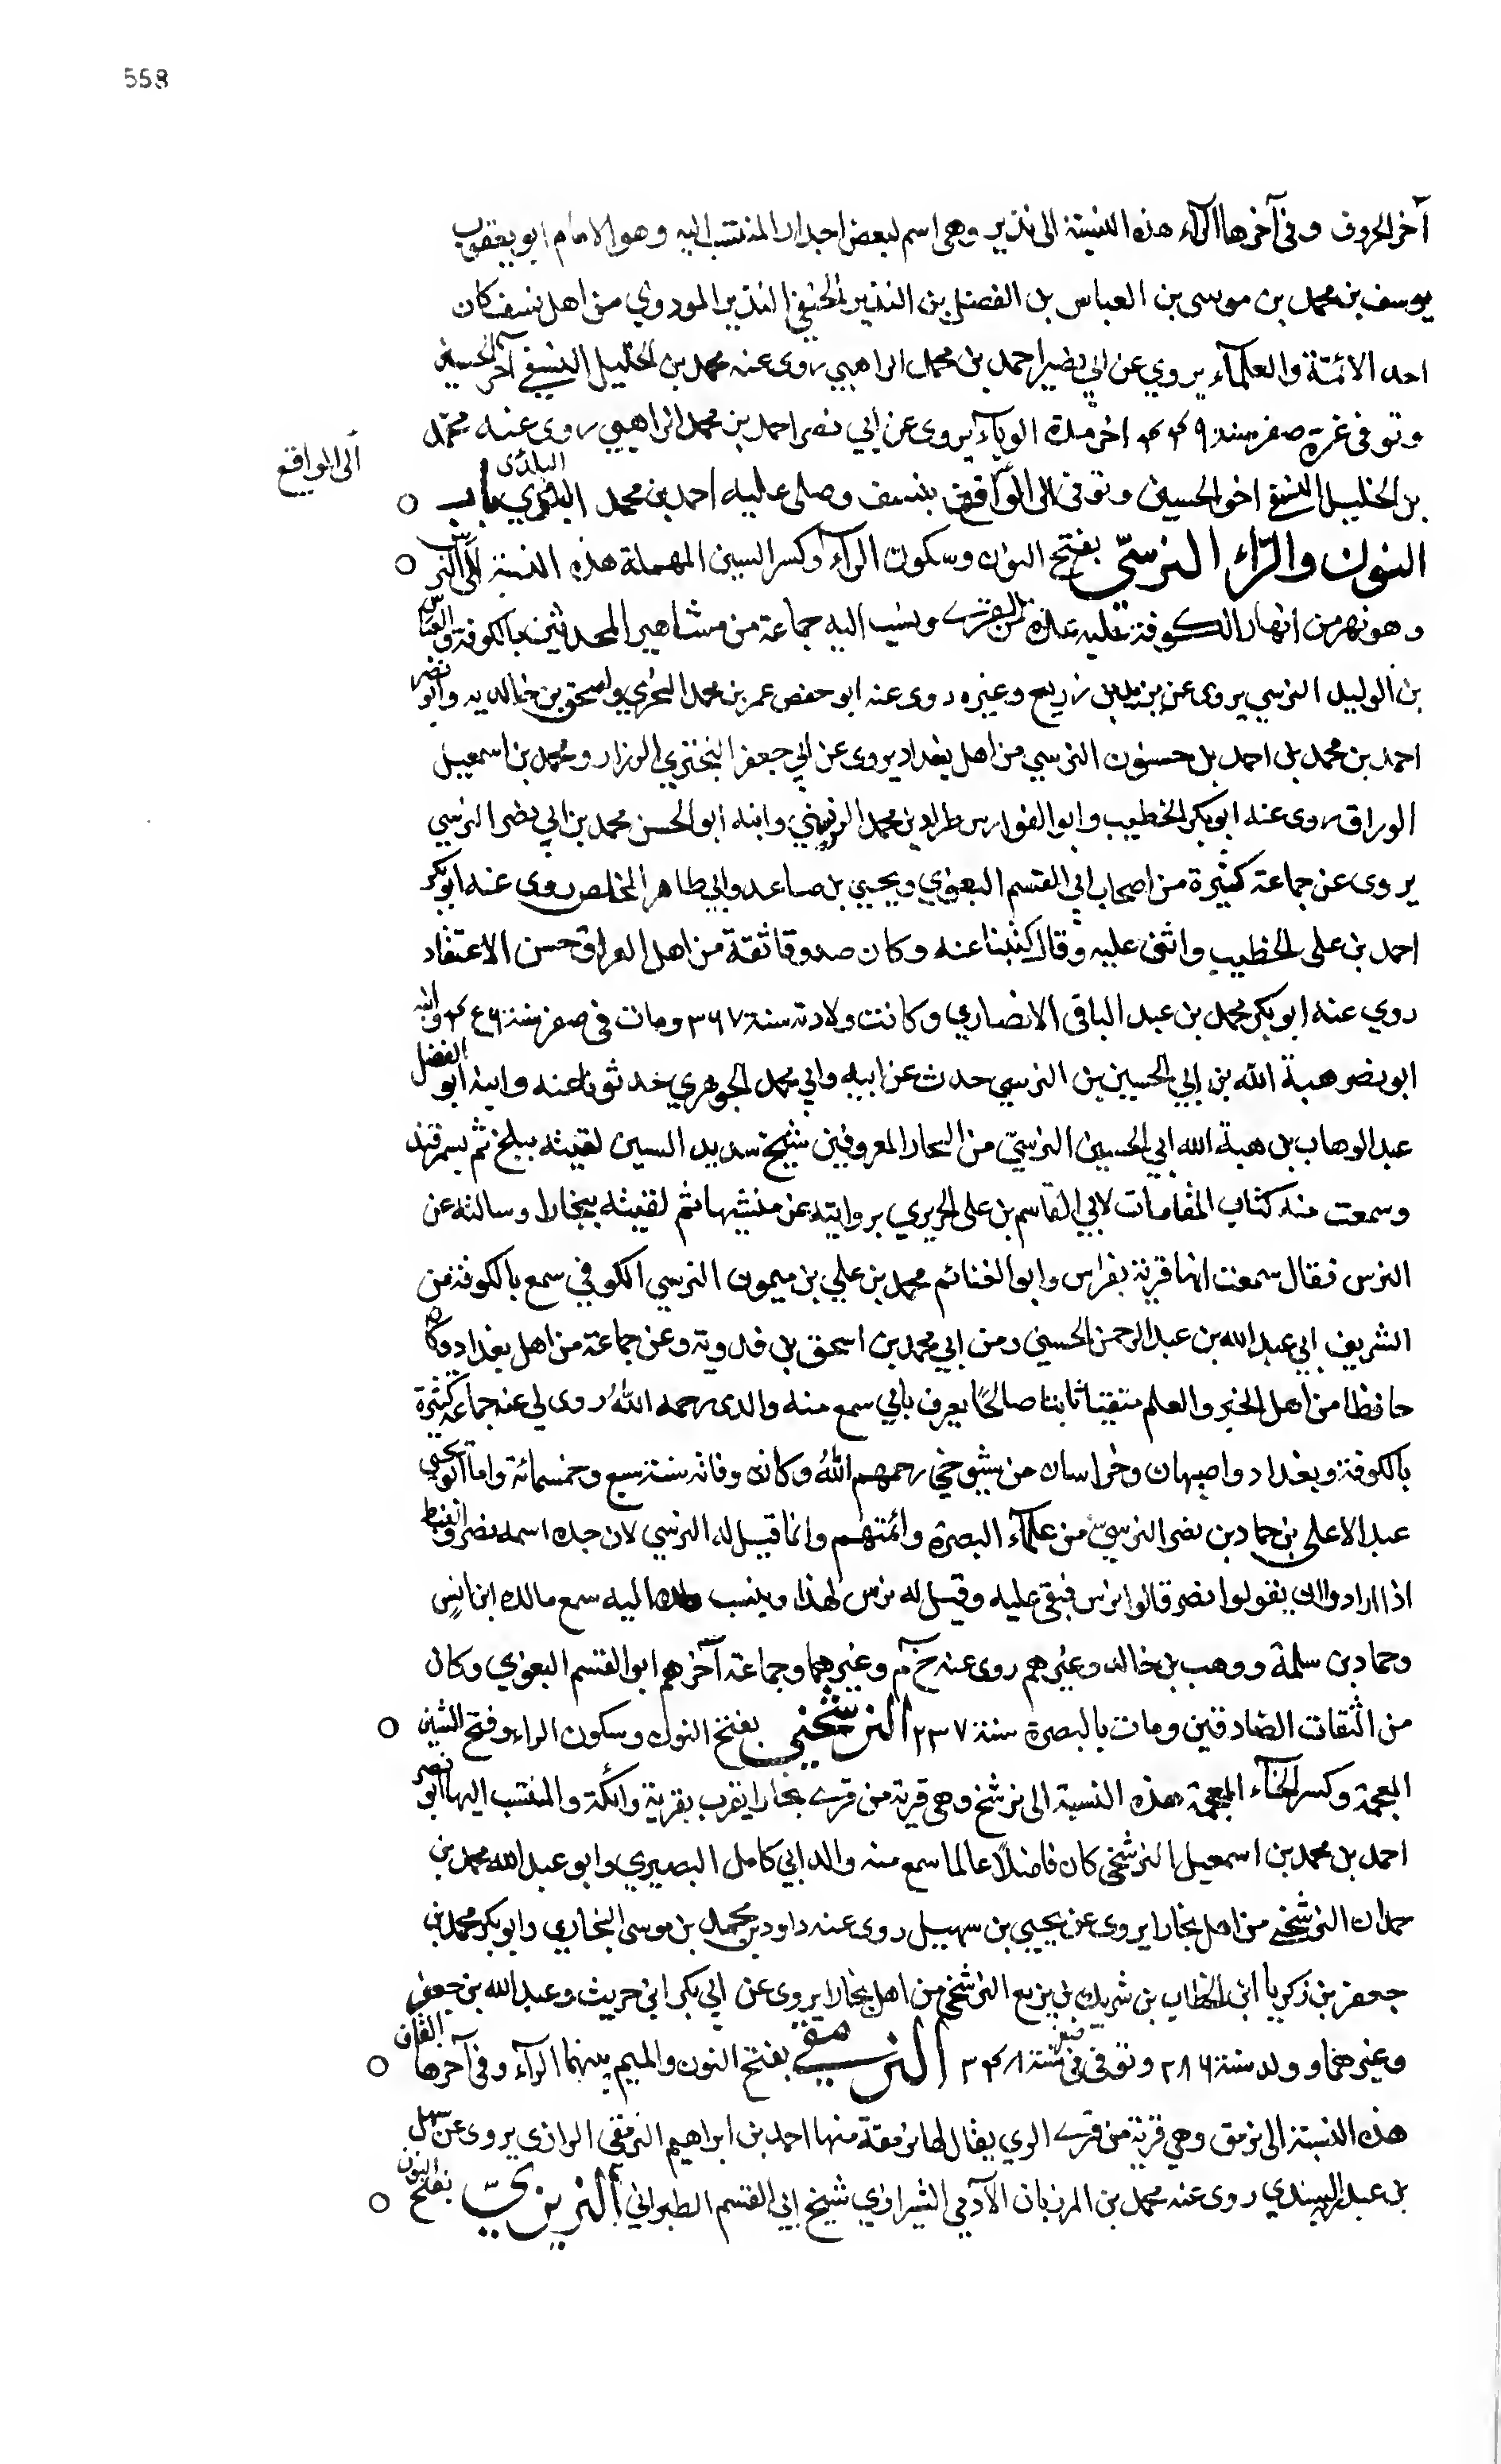 558
آخر الحروف وفى آخرها الرآء هذه النسبة الى نذير وهى اسم لبعض اجداد المنتسب اليه وهو الامام ابو يعقوب
يوسف بن محمد بن موسى بن العباس بن الفضل بن النذير الحنفى النذير المودوي من اهل نسف كان
احد الائمّة والعلمآء يروي عن ابي نصير احمد بن محمد الراهبي روى عنه محمد بن الخليل النسفي آخر الحسين
وتوفى غرة صفر سنة ٤٤٩ اخر مدة الوبآء يروى عن ابي نصر احمد بن محمد الراهبي روى عنه محمّد
الى المواقع
البلدى
بن الخليل النسفي اخو الحسين وتوفى الى المواقع بنسف وصلى عليه احمد بن محمد البلدي باب
النون والرّاء النرسيّ بفتح النون وسكون الرآء وكسر السين المهملة هذه النسبة الى النرس
وهو نهر من انهار الكوفة عليه عدة من القرى ونسب اليه جماعة من مشاهير المحدثين بالكوفة والعباس
بن الوليد النرسي يروى عن يزيد بن زريع وغيره روى عنه ابو حفص عمر بن محمد البحري واسحق بن خالديه وابو نصر
احمد بن محمد بن احمد بن حسنون النرسي من اهل بغداد يروى عن ابي جعفر البختري الوزار ومحمد بن اسمعيل
الوراق روى عنه ابو بكر الخطيب وابو الفوارس طراد بن محمد الزينبي وابنه ابو الحسن محمد بن ابي نصر النرسي
يروى عن جماعة كثيرة من اصحاب ابي القسم البغوي ويحيى بن صاعد وابي طاهر المخلص روى عنه ابو بكر
احمد بن على الخطيب واثنى عليه وقال كتبنا عنه وكان صدوقا ثقة من اهل القراق حسن الاعتقاد
روي عنه ابو بكر محمد بن عبد الباقى الانصاري وكانت ولادته سنة ٣٦٧ ومات فى صفر سنة وابنه
ابو نصر هبة الله بن ابي الحسين بن النرسي حدث عن ابيه وابي محمد الجوهري حدثونا عنه وابنه ابو الفضل
عبد الوهاب بن هبة الله ابي الحسين النرسيّ من التجار المعروفين شيخ سديد السين لقيته ببلخ ثم بسمرقند
وسمعت منه كتاب المقامات لابي القاسم بن على الحريري بروايته عن منشيها ثم لقيته ببخارا وسالته عن
النرس فقال سمعت انها قرية بفراس وابو الغنائم محمد بن علي بن ميمون النرسي الكوفي سمع بالكوفة من
الشريف ابي عبد الله بن عبد الرحمن الحسيني ومن ابي محمد بن اسحق بن فدوية وعن جماعة من اهل بغداد وكان
حافظا من اهل الخير والعلم متقنا ثابتا صالحًا يعرف بابي سمع منه والدى رحمه الله روى لي عنه جماعة كثيرة
بالكوفة وبغداد واصبهان وخراسان من شيوخي رحمهم الله وكانت وفاته سنة سبع وخمسمائة واما ابو يحيى
عبد الاعلى بن حماد بن نصر النرسيّ من علمآء البصرة وائمتهم وانما قيل له النرسي لان جده اسمه نصر والنبط
اذا ارادوا ان يقولوا نصر قالوا نرس فبقى عليه وقيل له نرس لهذا وينسب ولده اليه سمع مالك ابن انس
وحماد بن سلمة ووهب بن خالد وغيرهم روى عنه خ م وغيرهما وجماعة آخرهم ابو القسم البغوي وكان
من الثقات الصادقين ومات بالبصرة سنة ٢٣٧ النرشخي بفتح النون وسكون الراء وفتح الشين
المعجمة وكسر الخآء المعجمة هذه النسبة الى نرشخ وهى قرية من قرى بخارا بقرب بقرية وانكة والمنتسب اليها ابو نصر
احمد بن محمد بن اسمعيل النرشخى كان فاضلًا عالما سمع منه والد ابي كامل البصيري وابو عبد الله محمد بن
حمدان النرشخي من اهل بخارا يروى عن يحيى بن سهيل روى عنه داود بن محمد بن موسى البخاري وابو بكر محمد بن
جعفر بن زكريا ابن الخطاب بن شريك بن بزيع النرشخى من اهل بخارا يروى عن ابي بكر ابن حريث وعبد الله بن جعفر
وغيرهما وولد سنة ٢٨٦ وتوفى فى صفر سنة ٣٤٨ النرمقي بفتح النون والميم بينهما الرآء وفى آخرها القاف
هذه النسبة الى نرمق وهي قرية من قرى الري يقال لها نرمقة منها احمد بن ابراهيم النرمقى الرازى يروى عن سهل
بن عبد ربه السندي روى عنه محمد بن المرزبان الآدمي الشيرازي شيخ ابي القسم الطبراني النريزيّ بفتح النون